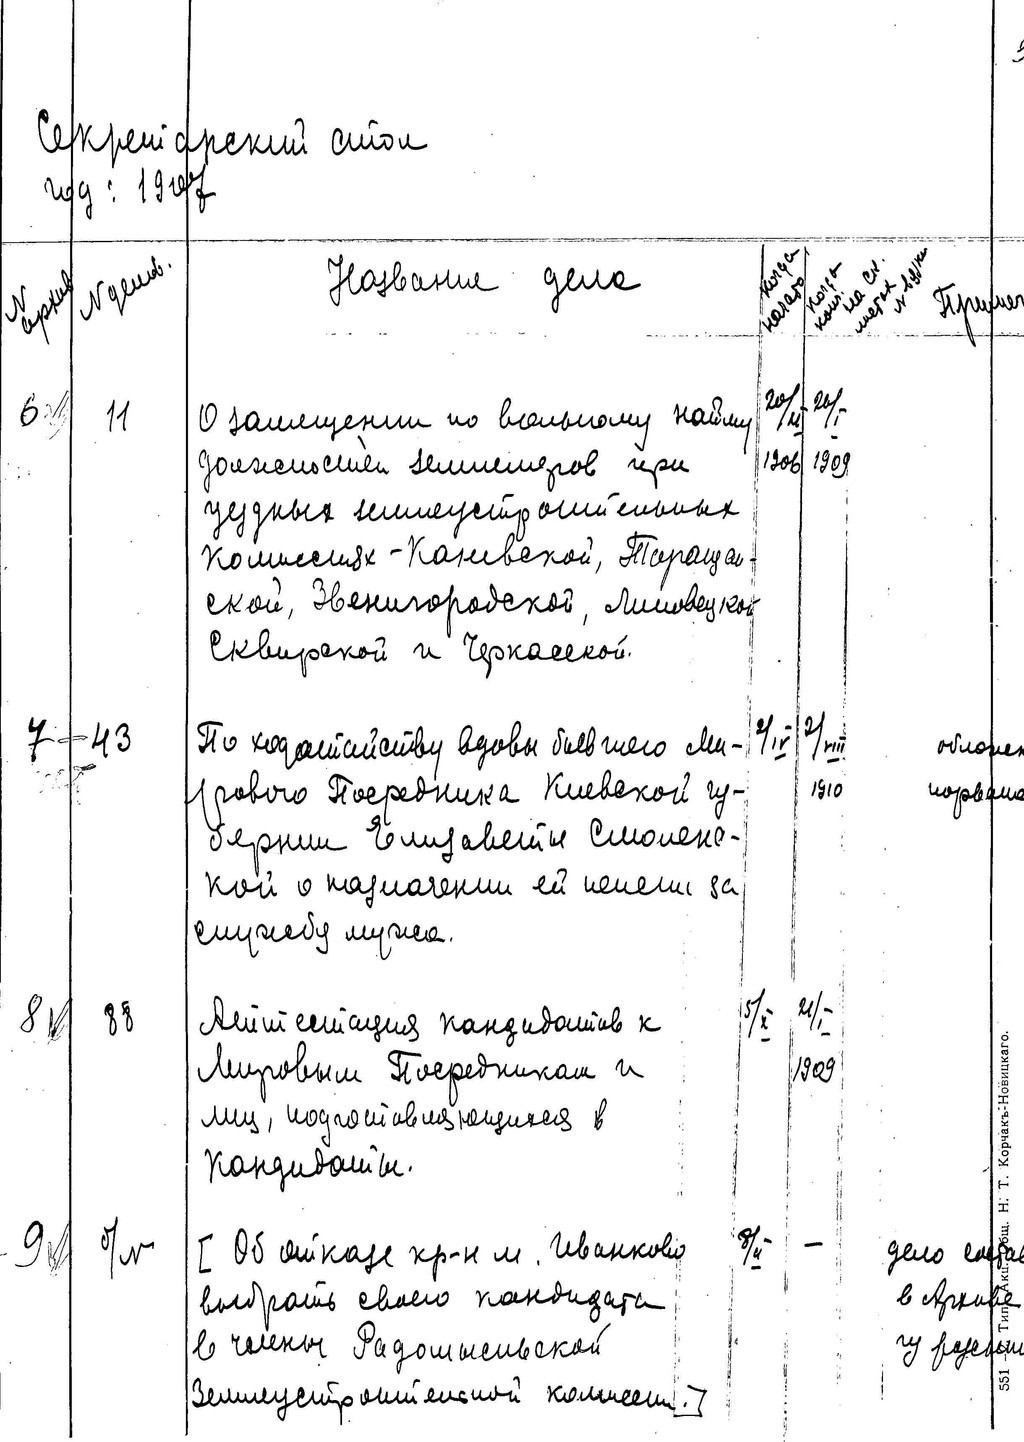 Секретарский стол
год: 1907
N архив
N делов.
Название дела
когда начато
когда конч.
на ск. листах
Примеч
6 11 О замещении по вольному найму 20/XI 20/I
должностей землемеров при 1906 1909
уездных землеустроительных
комиссиях - Каневской, Таращан-
ской, Звенигородской, Липовецкой
Сквирской и Черкасской.
7 - 43 По ходатайству вдовы бывшего Ми- 2/IV 2/VIII
рового Посредника Киевской гу- 1910
бернии Елизаветы Смоленс-
кой о назначении ей пенсии за
службу мужа.
обложк
порвана
8 88 Аттестация кандидатов к 5/X 21/I
Мировым Посредникам и 1909
лиц, подготовляющихся в
кандидаты.
9 б/N [ Об отказе кр-н м. Иванково 8/II — дело
выбрать своего кандидата в Архиве
в члены Радомысльской
Землеустроительной комиссии.]
551 — Тип. Акц. Общ. Н. Т. Корчакъ-Новицкаго.